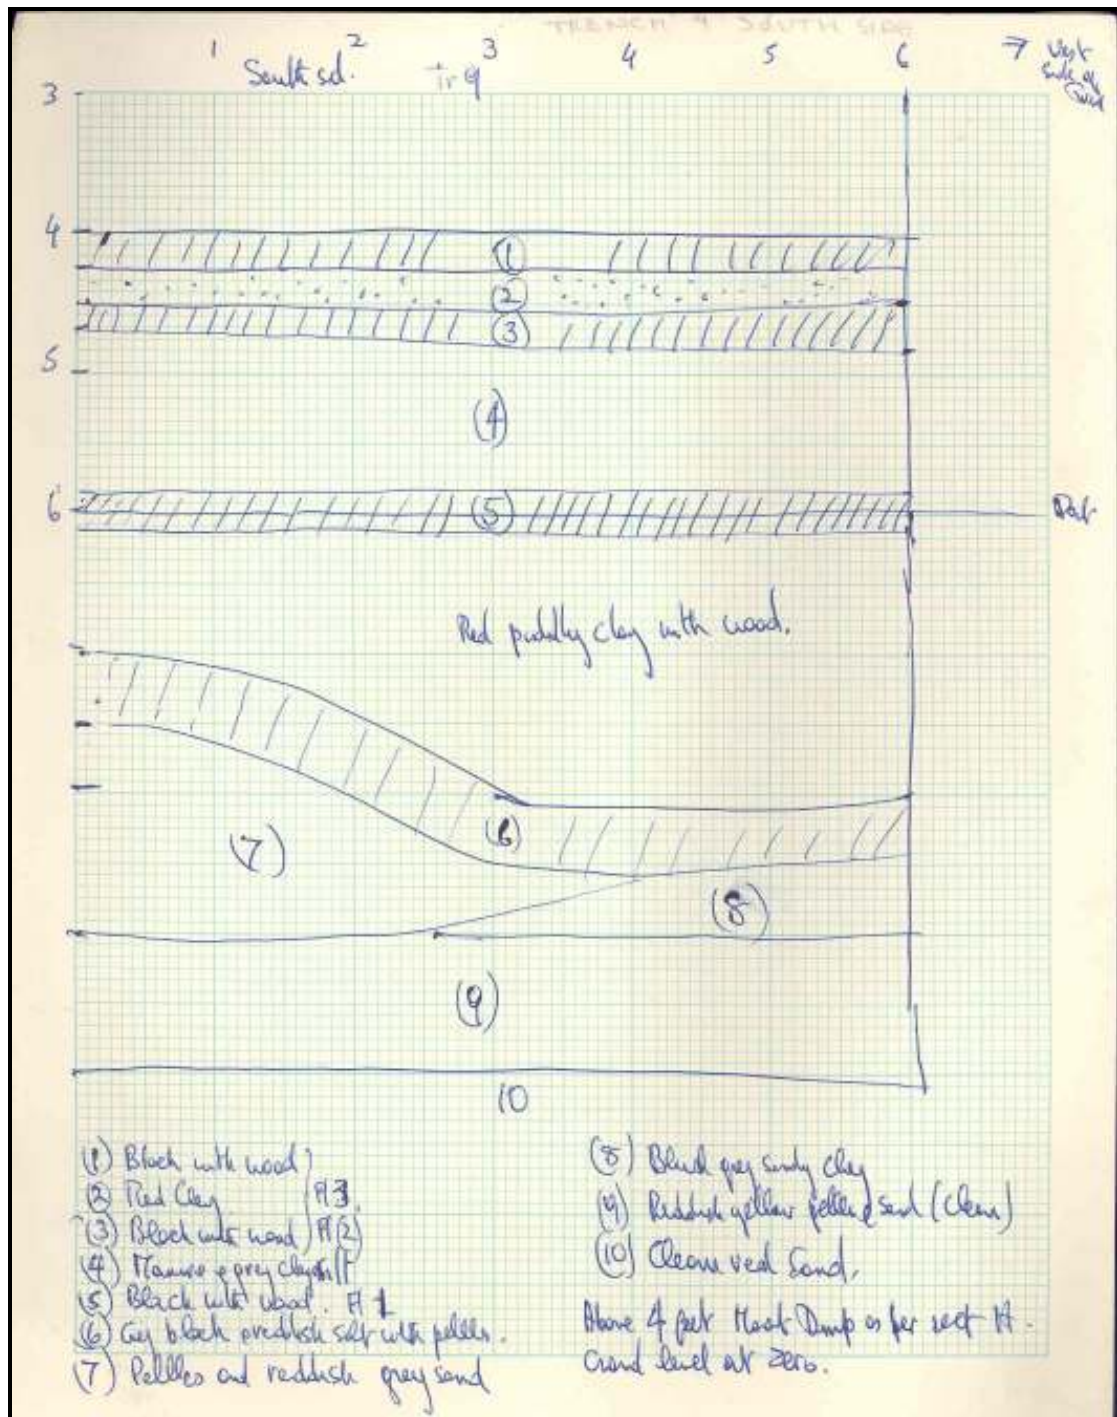 TRENCH 9 SOUTH SIDE
1 2 3 4 5 6 7 West
South sd. Tr 9 Side of
3
4
(1)
(2)
(3)
5
(4)
6 (5) Dat
Red puddly clay with wood.
(6)
(7)
(8)
(9)
10
(1) Black with wood
(2) Red Clay H3
(3) Black with wood H(2)
(4) Manure & grey clay silt
(5) Black with wood. H 1
(6) Grey black & reddish silt with pebbles.
(7) Pebbles and reddish grey sand
(8) Bluish grey sandy clay
(9) Reddish yellow pebble sand (Clean)
(10) Clean red Sand.
Above 4 feet Moat Dump as per sect H.
Ground level at zero.